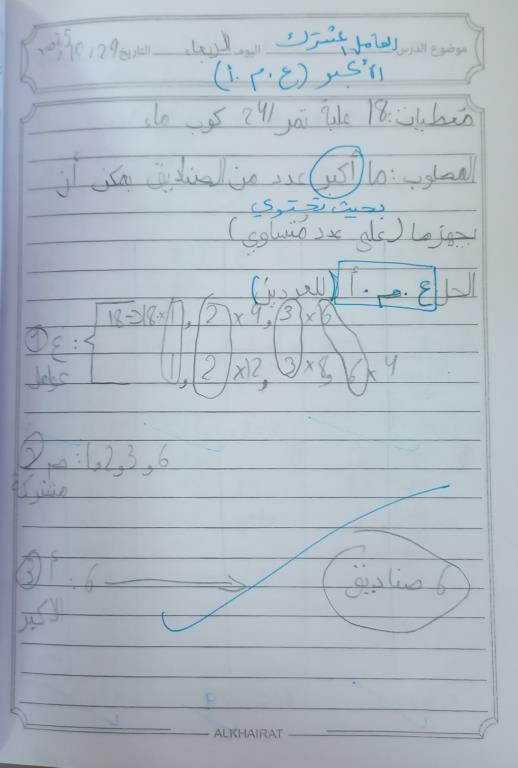 موضوع الدرس العامل المشترك اليوم الاربعاء التاريخ 29, 10, 2025
الأكبر (ع.م.أ)
معطيات: 18 علبة تمر و 24 كوب ماء
المطلوب: ما أكبر عدد من الصناديق يمكن أن
بحيث تحتوي
يجهزها (على عدد متساوي)
الحل ع.م.أ (للعددين)
① ع: 18 => 18×1, 2×9, 3×6
عوامل 1, 2×12, 3×8, 6×4
② م: 1, 2, 3, 6
مشتركة
③ أ: 6 → 6 صناديق
الأكبر
ALKHAIRAT